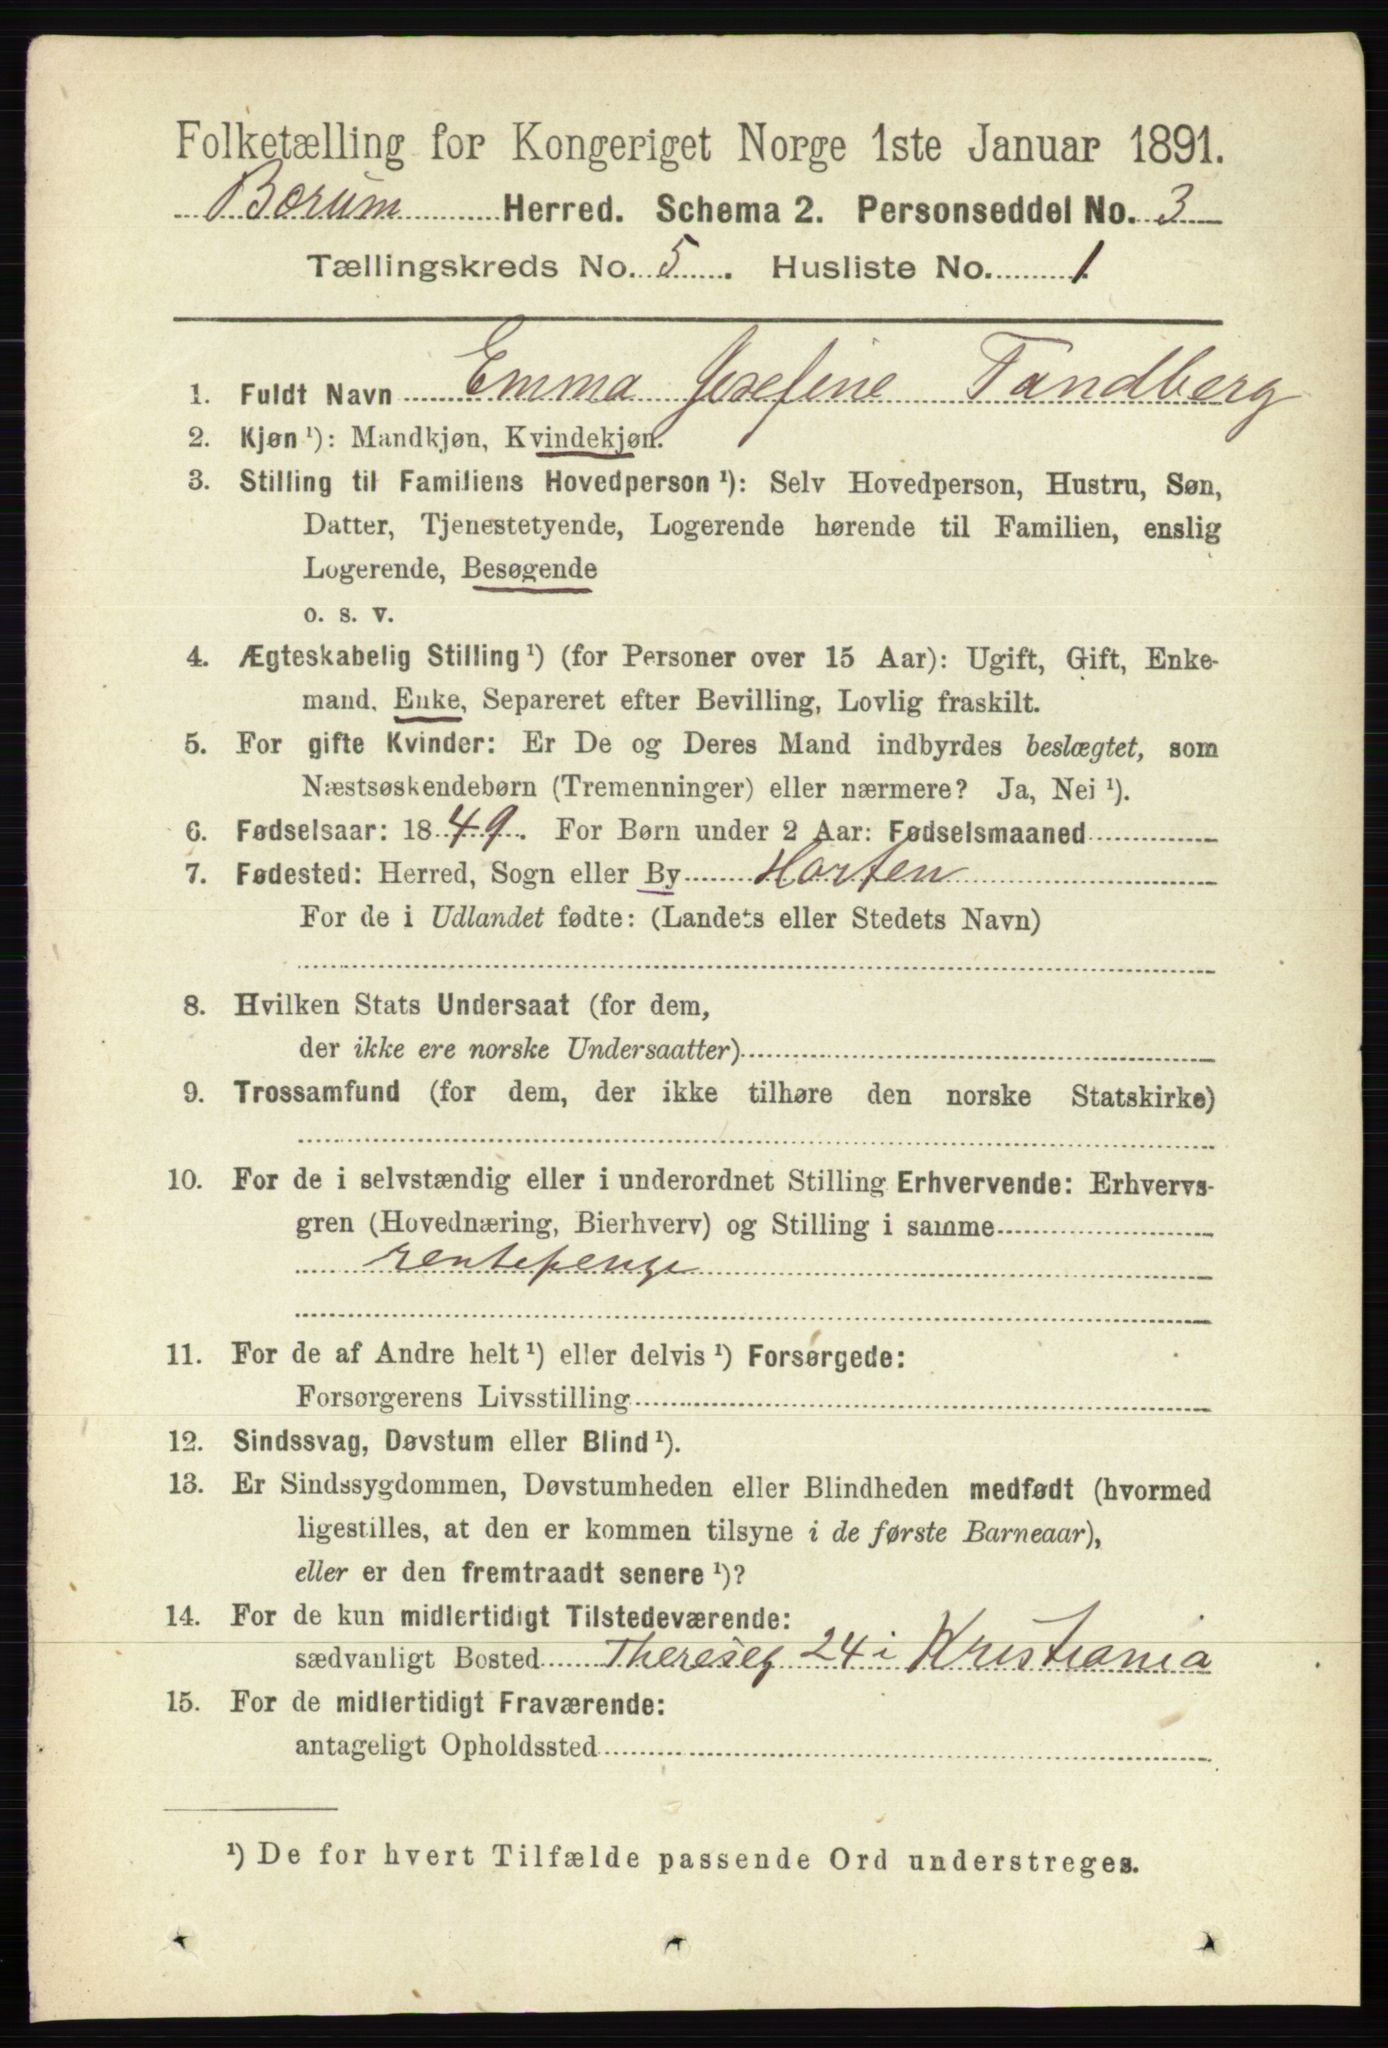 Folketælling for Kongeriget Norge 1ste Januar 1891.
Bærum Herred. Schema 2. Personseddel No. 3
Tællingskreds No. 5. Husliste No. 1
1. Fuldt Navn Emma Josefine Tandberg
2. Kjøn ¹): Mandkjøn, Kvindekjøn.
3. Stilling til Familiens Hovedperson ¹): Selv Hovedperson, Hustru, Søn,
Datter, Tjenestetyende, Logerende hørende til Familien, enslig
Logerende, Besøgende
o. s. v.
4. Ægteskabelig Stilling ¹) (for Personer over 15 Aar): Ugift, Gift, Enke-
mand, Enke, Separeret efter Bevilling, Lovlig fraskilt.
5. For gifte Kvinder: Er De og Deres Mand indbyrdes beslægtet, som
Næstsøskendebørn (Tremenninger) eller nærmere? Ja, Nei ¹).
6. Fødselsaar: 1849. For Børn under 2 Aar: Fødselsmaaned
7. Fødested: Herred, Sogn eller By Horten
For de i Udlandet fødte: (Landets eller Stedets Navn)
8. Hvilken Stats Undersaat (for dem,
der ikke ere norske Undersaatter)
9. Trossamfund (for dem, der ikke tilhøre den norske Statskirke)
10. For de i selvstændig eller i underordnet Stilling Erhvervende: Erhvervs-
gren (Hovednæring, Bierhverv) og Stilling i samme
rentepenge
11. For de af Andre helt ¹) eller delvis ¹) Forsørgede:
Forsørgerens Livsstilling
12. Sindssvag, Døvstum eller Blind ¹).
13. Er Sindssygdommen, Døvstumheden eller Blindheden medfødt (hvormed
ligestilles, at den er kommen tilsyne i de første Barneaar),
eller er den fremtraadt senere ¹)?
14. For de kun midlertidigt Tilstedeværende:
sædvanligt Bosted Thereseg 24 i Kristiania
15. For de midlertidigt Fraværende:
antageligt Opholdssted
¹) De for hvert Tilfælde passende Ord understreges.